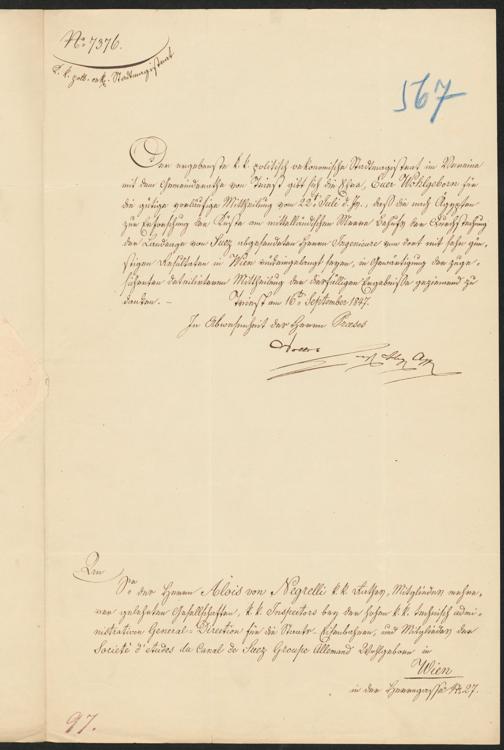 No 7376.
k. k. polit. oek. Stadtmagistrat
567
Der ergebenste k. k. politisch oekonomische Stadtmagistrat im Vereine
mit dem Gemeinderathe von Triest gibt sich die Ehre, Euer Wohlgeborn für
die gütige vorläufige Mittheilung vom 22t. Juli d. J., daß die nach Egypten
zur Erforschung der Küste am mittelländischen Meere behufs der Durchstechung
der Landenge von Suez abgesandeten Herrn Ingenieure von dort mit sehr gün„
stigen Resultaten in Wien rückeingelangt seyen, in Gewärtigung der zuge„
sicherten detailirteren Mittheilung der derfälligen Ergebnisse geziemend zu
danken. –
Triest am 16t. September 1847.
In Abwesenheit der Herrn Praeses
An
Sr der Herrn Alois von Negrelli k. k. Rathes, Mitgliedes mehre„
rer gelehrten Gesellschaften, k. k. Inspectors bey der hohen k. k. technisch admi„
nistrativen General-Direction für die Staats-Eisenbahnen, und Mitgliedes der
Societé d'études du Canal de Suez Groupe Allemand Wohlgeborn in
Wien
in der Herrngasse No 27.
97.